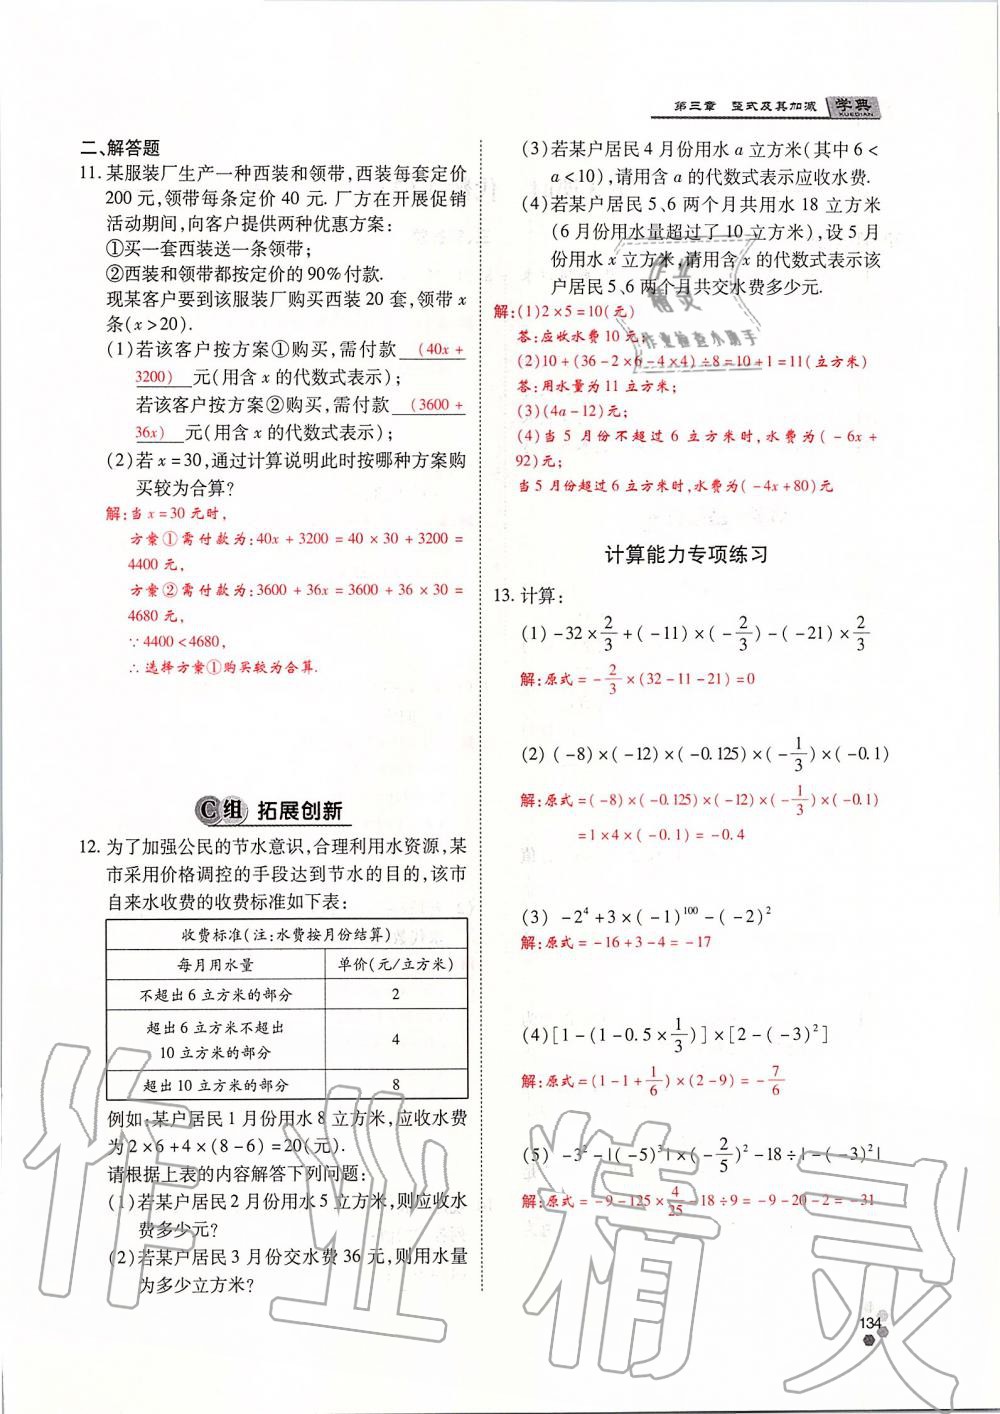 第三章 整式及其加减 学典
XUEDIAN
二、解答题
11. 某服装厂生产一种西装和领带,西装每套定价
200 元,领带每条定价 40 元. 厂方在开展促销
活动期间,向客户提供两种优惠方案:
①买一套西装送一条领带;
②西装和领带都按定价的 90% 付款.
现某客户要到该服装厂购买西装 20 套,领带 x
条(x>20).
(1)若该客户按方案①购买,需付款 (40x+
3200) 元(用含 x 的代数式表示);
若该客户按方案②购买,需付款 (3600+
36x) 元(用含 x 的代数式表示);
(2)若 x=30,通过计算说明此时按哪种方案购
买较为合算?
解:当 x=30 元时,
方案①需付款为:40x+3200=40×30+3200=
4400 元,
方案②需付款为:3600+36x=3600+36×30=
4680 元,
∵4400<4680,
∴选择方案①购买较为合算.
C组 拓展创新
12. 为了加强公民的节水意识,合理利用水资源,某
市采用价格调控的手段达到节水的目的,该市
自来水收费的收费标准如下表:
收费标准(注:水费按月份结算)
每月用水量 单价(元/立方米)
不超出 6 立方米的部分 2
超出 6 立方米不超出
10 立方米的部分 4
超出 10 立方米的部分 8
例如:某户居民 1 月份用水 8 立方米,应收水费
为 2×6+4×(8-6)=20(元).
请根据上表的内容解答下列问题:
(1)若某户居民 2 月份用水 5 立方米,则应收水
费多少元?
(2)若某户居民 3 月份交水费 36 元,则用水量
为多少立方米?
(3)若某户居民 4 月份用水 a 立方米(其中 6<
a<10),请用含 a 的代数式表示应收水费.
(4)若某户居民 5、6 两个月共用水 18 立方米
(6 月份用水量超过了 10 立方米),设 5 月
份用水 x 立方米,请用含 x 的代数式表示该
户居民 5、6 两个月共交水费多少元.
解:(1)2×5=10(元)
答:应收水费 10 元;
(2)10+(36-2×6-4×4)÷8=10+1=11(立方米)
答:用水量为 11 立方米;
(3)(4a-12)元;
(4)当 5 月份不超过 6 立方米时,水费为(-6x+
92)元;
当 5 月份超过 6 立方米时,水费为(-4x+80)元
计算能力专项练习
13. 计算:
(1) -32×2/3+(-11)×(-2/3)-(-21)×2/3
解:原式=-2/3×(32-11-21)=0
(2) (-8)×(-12)×(-0.125)×(-1/3)×(-0.1)
解:原式=(-8)×(-0.125)×(-12)×(-1/3)×(-0.1)
=1×4×(-0.1)=-0.4
(3) -2⁴+3×(-1)¹⁰⁰-(-2)²
解:原式=-16+3-4=-17
(4)[1-(1-0.5×1/3)]×[2-(-3)²]
解:原式=(1-1+1/6)×(2-9)=-7/6
(5) -3²-|(-5)³|×(-2/5)²-18÷|-(-3)²|
解:原式=-9-125×4/25-18÷9=-9-20-2=-31
134
作业精灵
作业
精灵
作业检查小助手